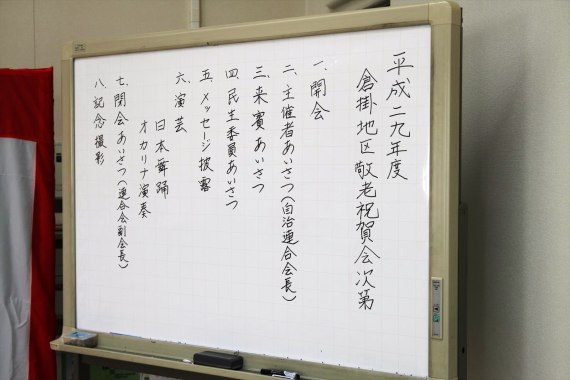 平成二九年度
倉掛地区敬老祝賀会次第
一、開会
二、主催者あいさつ(自治連合会長)
三、来賓あいさつ
四、民生委員あいさつ
五、メッセージ披露
六、演芸
日本舞踊
オカリナ演奏
七、閉会あいさつ(連合会副会長)
八、記念撮影